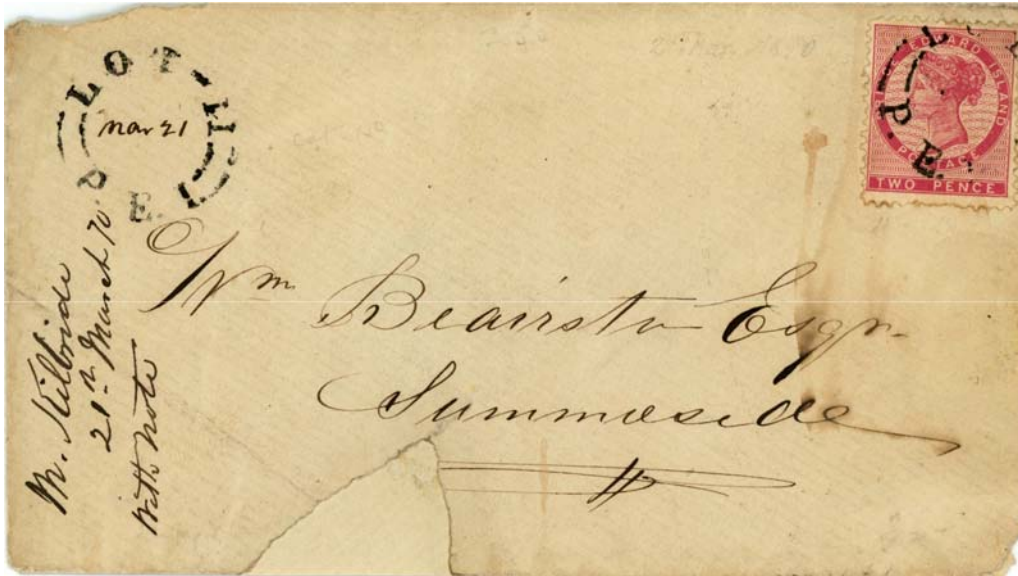 LOT 11.
P. E. I
Mar 21
EDWARD ISLAND
POSTAGE
TWO PENCE
P. E.
Wm Beairsto Esqr.
Summerside
M. Kilbride
21st March 70
With Note